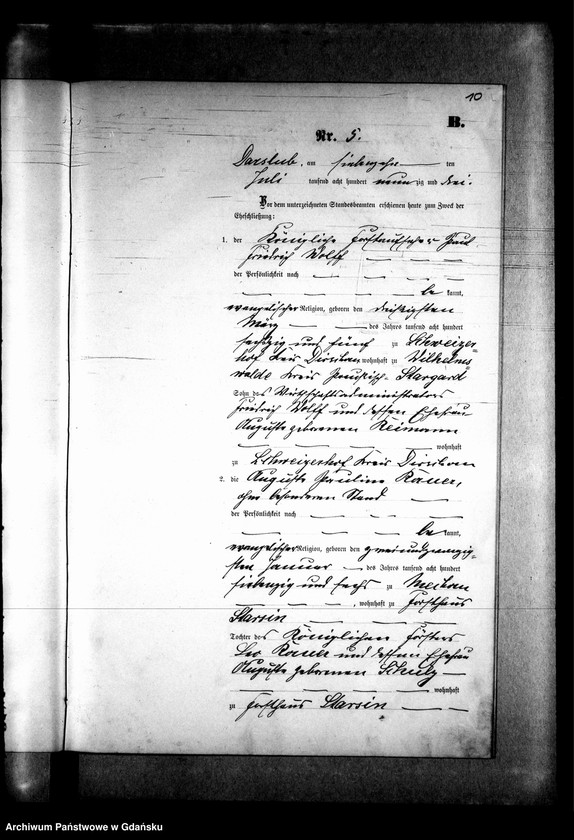 10
B.
Nr. 5.
Darslub, am siebenzehn ten
Juli tausend acht hundert neunzig und drei.
Vor dem unterzeichneten Standesbeamten erschienen heute zum Zweck der
Eheschließung:
1. der Königliche Forstaufseher Paul
Friedrich Wolff
der Persönlichkeit nach
be kannt,
evangelischer Religion, geboren den dreißigsten
März des Jahres tausend acht hundert
sechzig und fünf zu Schweizer=
hof Kreis Dirschau wohnhaft zu Wilhelms=
walde Kreis Preußisch-Stargard
Sohn des Wirthschaftsadministrators
Friedrich Wolff und dessen Ehefrau
Auguste geborenen Reimann
wohnhaft
zu Schweizerhof Kreis Dirschau
2. die Auguste Pauline Rauer,
ohne besonderen Stand
der Persönlichkeit nach
be kannt,
evangelischer Religion, geboren den zweiundzwanzig=
sten Januar des Jahres tausend acht hundert
siebenzig und sechs zu
, wohnhaft zu Forsthaus
Starsin
Tochter des Königlichen Försters
Leo Rauer und dessen Ehefrau
Auguste geborenen Schulz
wohnhaft
zu Forsthaus Starsin
Archiwum Państwowe w Gdańsku